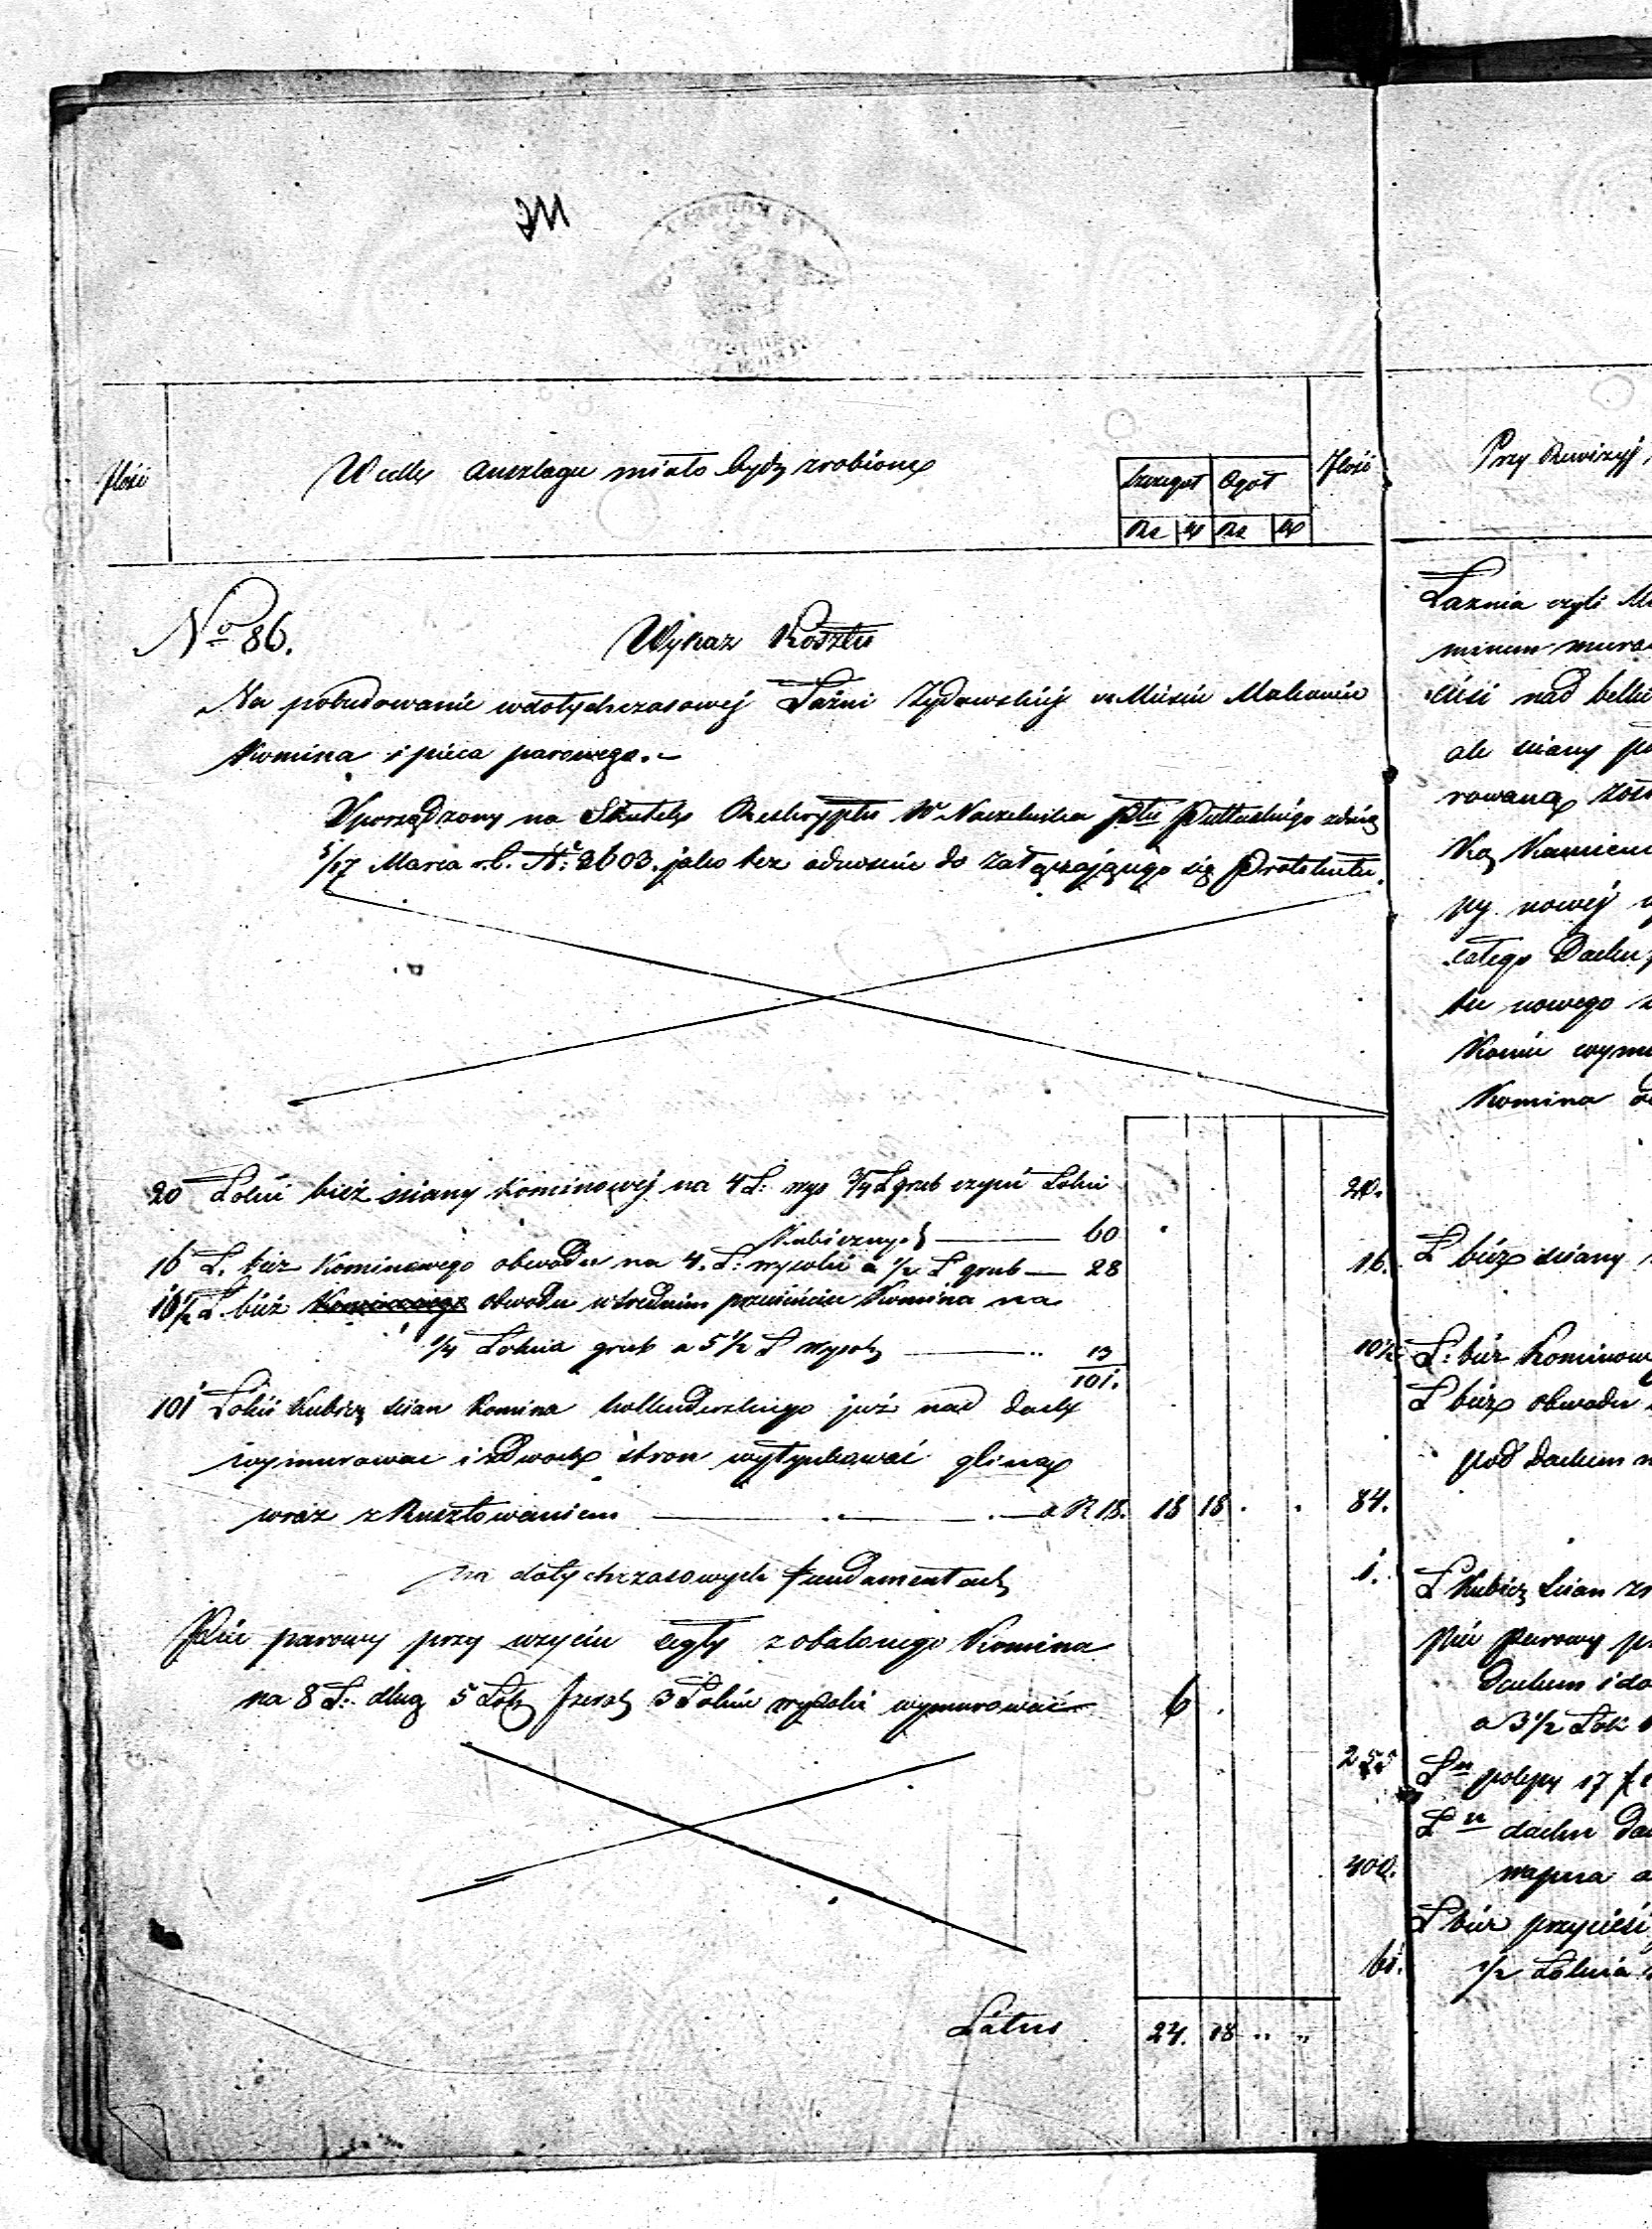 Ilość
Wedle Anszlagu miało bydź zrobione
Szczegół Ogół
Rs K Rs K
Ilość
No 86.
Wykaz Kosztu
Na pobudowanie w dotychczasowej Łaźni Żydowskiej w Mieście Makowie
Komina i pieca parowego.
Sporządzony na Skutek Reskryptu W Naczelnika Ptu Pułtuskiego z dnia
5/17 Marca r.b. No 2603. jako też odnośnie do załączającego się Protokułu.
20 Łokci bież ściany Kominowej na 4 Ł: wys 3/4 Ł grub czyni Łokci
Kubicznych 60
16 Ł. bież Kominowego obwodu na 4. Ł: wysokie a 1/2 Ł grub 28
10 1/2 Ł bież Kominowego obwodu w średnim przecięciu Komina na
1/4 Łokcia grub a 5 1/2 Ł wysok 13
101.
101 Łokci Kubicz ścian Komina hollenderskiego już nad dach
wymurować i z dwóch stron wytynkować gliną
wraz z Rusztowaniem a K 18. 18 18
na dotychczasowych fundamentach
Piec parowy przy użyciu cegły z obalonego Komina
na 8 Ł: dług 5 Łok szerok 3 Łokcie wysoki wymurować 6
Latus 24. 18 " "
20.
16.
10 1/2
84.
1.
255
400.
61.
Przy Rewizyj
Łaznia czyli
minem
cieśi nad
ale ściany
rowaną
Ką
py nowej
całego Dachu
tu nowego
Komin
Komina
Ł bież ściany
Ł: bież Kominow
Ł bież obwodu
pod Dachem
Ł Kubicz ścian
Piec Parowy
Dachem i do
a 3 1/2 Łok
Ł polepy 17
Ł dachu
wapna a
Ł bież przycieśi
1/2 Łokcia